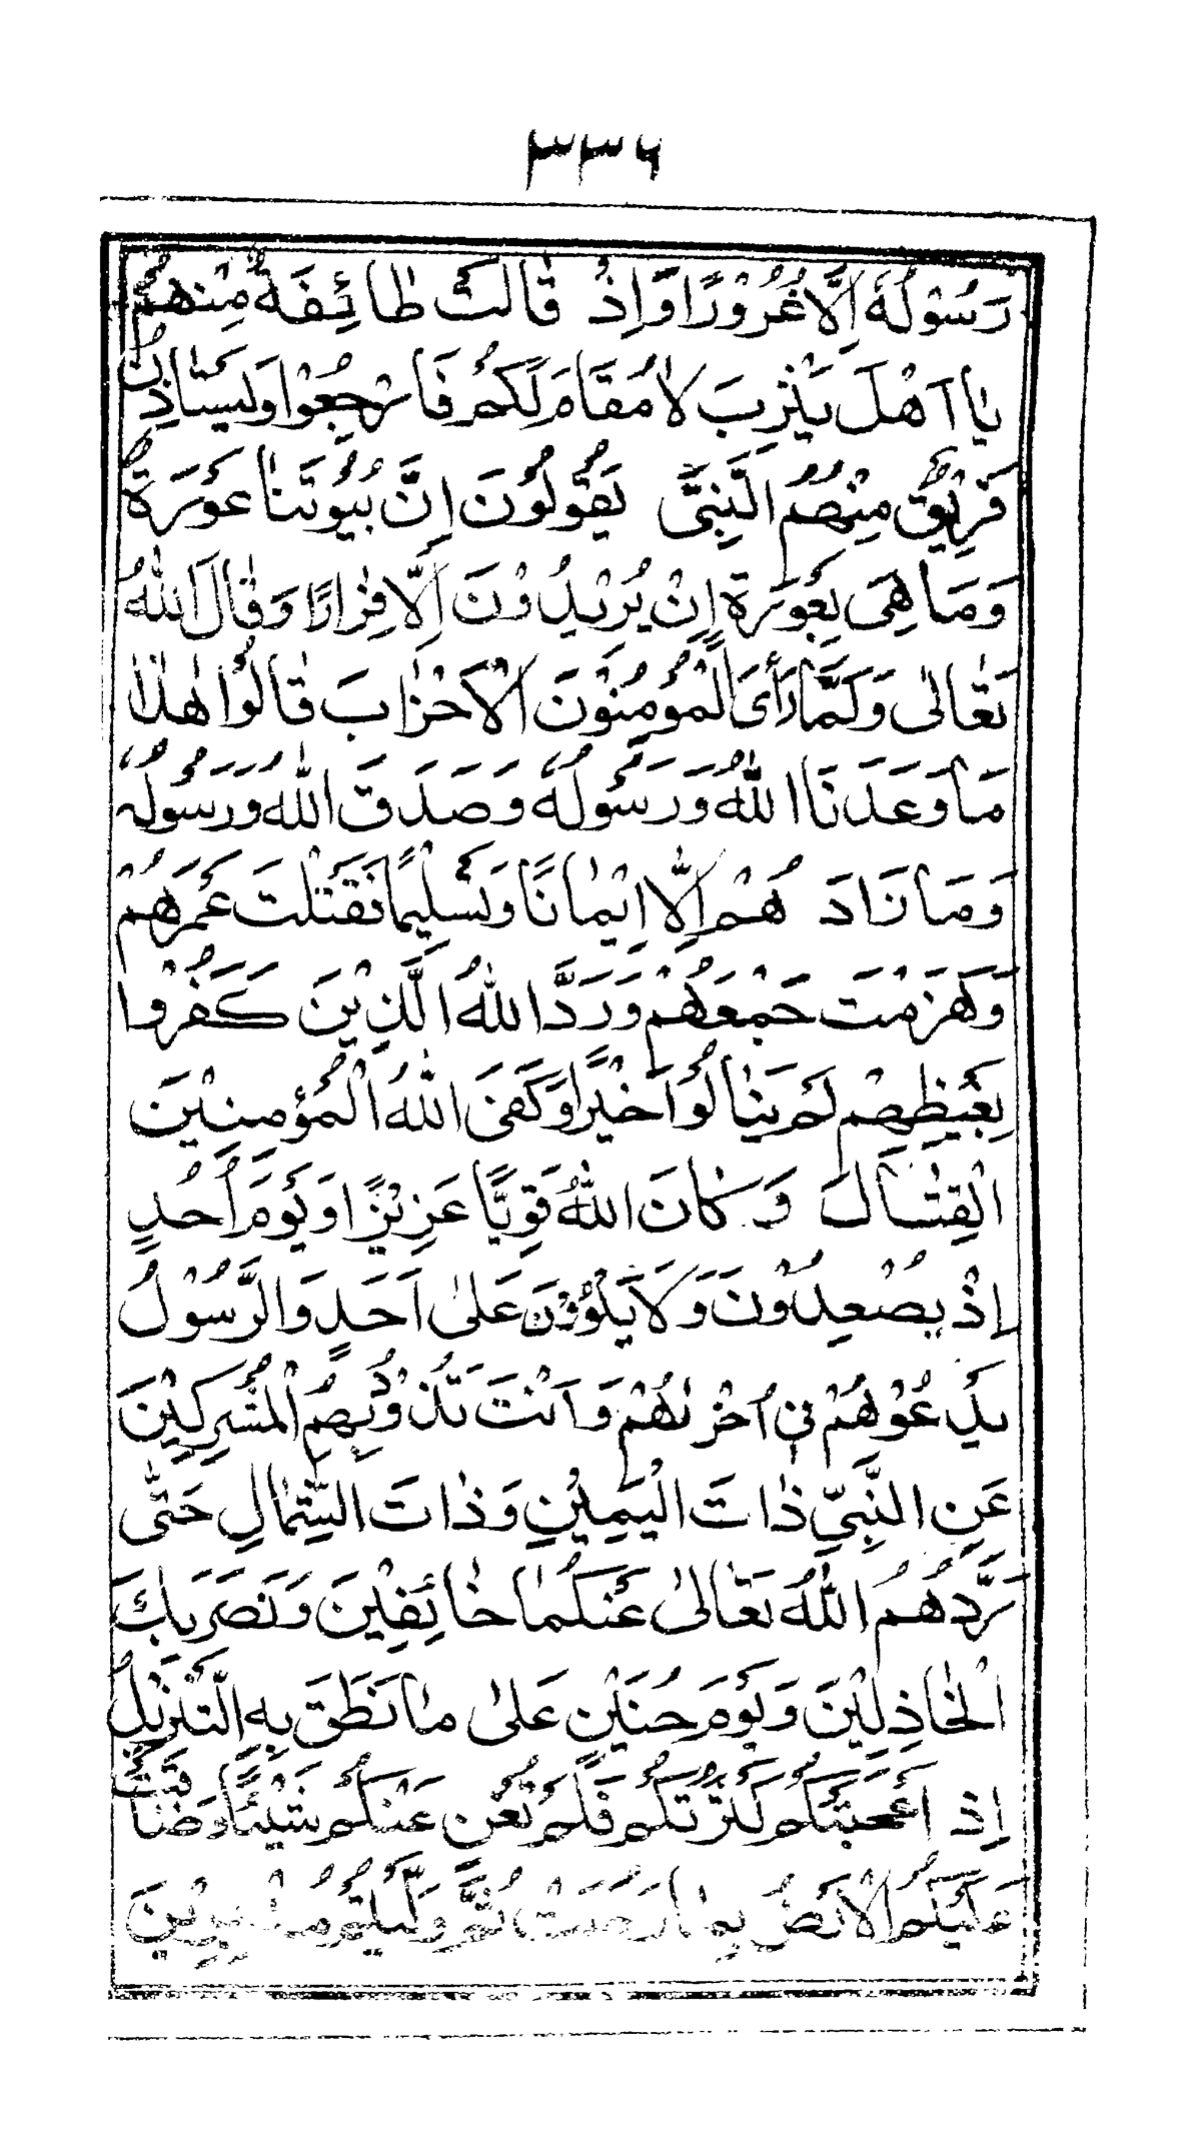 ٣٣٦
رَسُوْلُهُ اِلَّا غُرُوْرًا وَّاِذْ قٰالَتْ طٰائِفَةٌ مِنْهُمْ
يٰا اَهْلَ يَثْرِبَ لاٰ مُقٰامَ لَكُمْ فَارْجِعُوْا وَيَسْتَاْذِنُ
فَرِيْقٌ مِنْهُمُ النَّبِىَّ يَقُوْلُوْنَ اِنَّ بُيُوْتَنٰا عَوْرَةٌ
وَمٰا هِىَ بِعَوْرَةٍ اِنْ يُرْيِدُوْنَ اِلَّا فِرٰارًا وَقٰالَ اللهُ
تَعٰالىٰ وَلَمَّا رَأَى الْمُؤْمِنُوْنَ الْاَحْزٰابَ قٰالُوْا هٰذٰا
مٰا وَعَدَنَا اللهُ وَرَسُوْلُهُ وَصَدَقَ اللهُ وَرَسُوْلُهُ
وَمٰا زَادَ هُمْ اِلَّا اِيْمٰانًا وَتَسْلِيْمًا فَقَتَلْتَ عَمْرَهُمْ
وَهَزَمْتَ جَمْعَهُمْ وَرَدَّ اللهُ الَّذِيْنَ كَفَرُوا
بِغَيْظِهِمْ لَمْ يَنٰالُوْا خَيْرًا وَكَفَى اللهُ الْمُؤْمِنِيْنَ
الْقِتٰالَ وَكٰانَ اللهُ قَوِيًّا عَزِيْزًا وَيَوْمَ اُحُدٍ
اِذْ يُصْعِدُوْنَ وَلَا يَلْوُوْنَ عَلىٰ اَحَدٍ وَالرَّسُوْلُ
يَدْعُوْهُمْ فِى اُخْرٰىهُمْ وَاَنْتَ تَذُوْدُ بُهَمَ الْمُشْرِكِيْنَ
عَنِ النَّبِيِّ ذٰاتَ الْيَمِيْنِ وَذٰاتَ الشِّمٰالِ حَتّٰى
رَدَّهُمُ اللهُ تَعٰالىٰ عَنْكُمٰا خٰائِفِيْنَ وَنَصَرَ بِكَ
الْخٰاذِلِيْنَ وَيَوْمَ حُنَيْنٍ عَلىٰ مٰا نَطَقَ بِهِ التَّنْزِيْلُ
اِذْ اَعْجَبَتْكُمْ كَثْرَتُكُمْ فَلَمْ تُغْنِ عَنْكُمْ شَيْئًا وَضٰاقَتْ
عَلَيْكُمُ الْاَرْضُ بِمٰا رَحُبَتْ ثُمَّ وَلَّيْتُمْ مُدْبِرِيْنَ